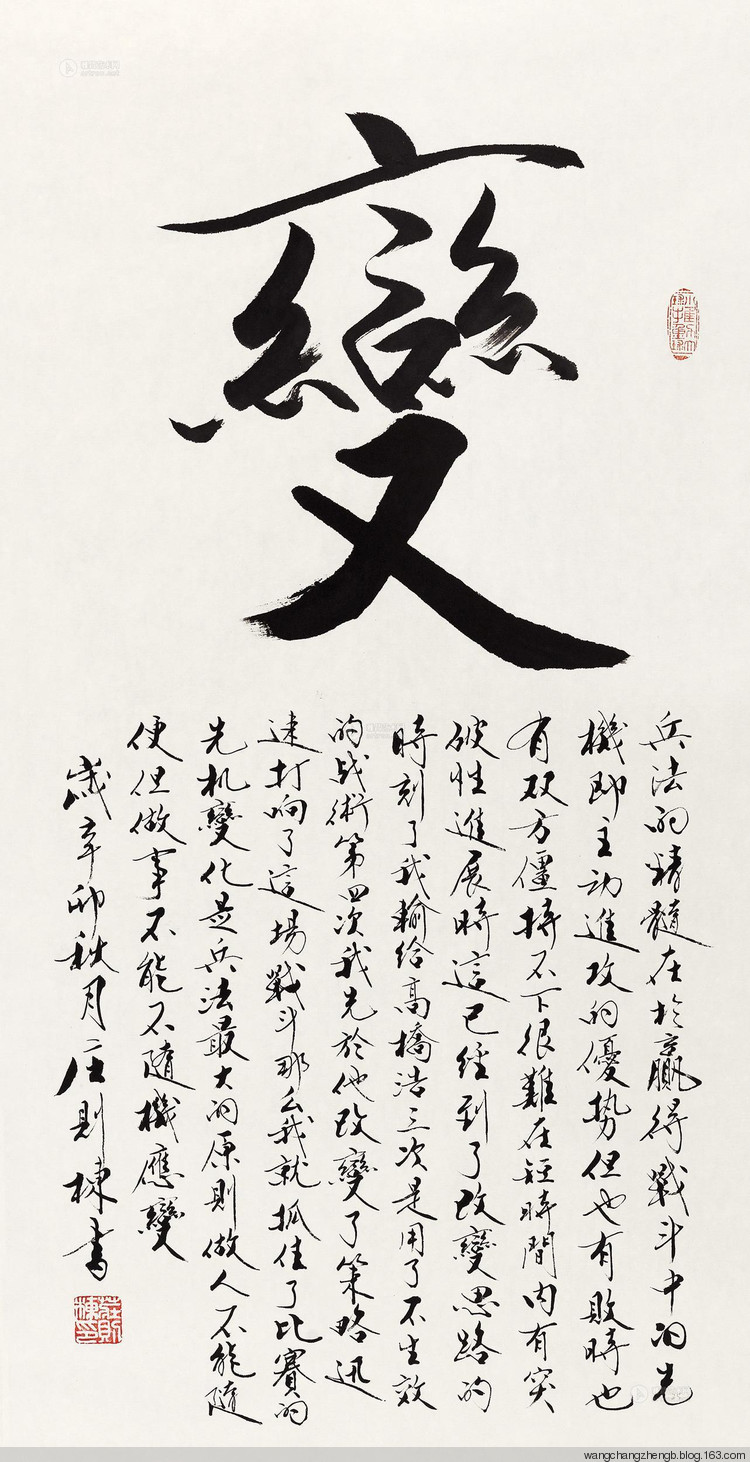 變
兵法的精髓在於赢得戰斗中的先
機即主动進攻的優势但也有敗時也
有双方僵持不下很難在短時間内有突
破性進展時這已經到了改變思路的
時刻了我輸给高橋浩三次是用了不生效
的战術第四次我先於他改變了策略迅
速打响了這場戰斗那么我就抓住了比賽的
先机變化是兵法最大的原則做人不能隨
便但做事不能不隨機應變
歲辛卯秋月庄則棟書
莊則棟印
wangchangzhengb.blog.163.com